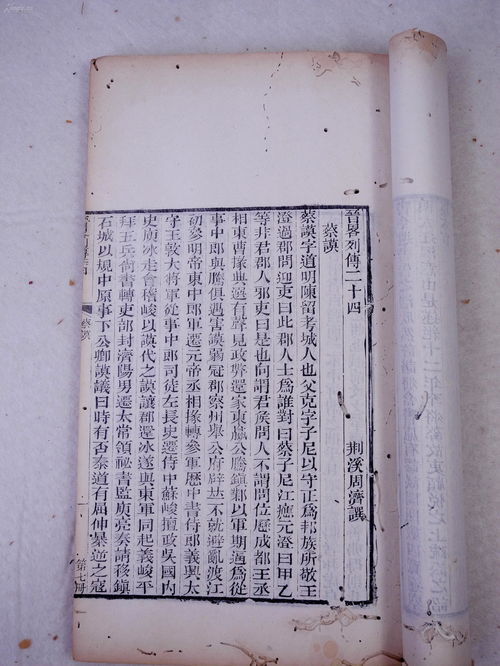 晉畧列傳二十四
荆溪周濟譔
蔡謨
蔡謨字道明陳留考城人也父克字子尼以守正爲邦族所敬王
澄過郡問迎吏曰此郡人士爲誰對曰蔡子尼江應元澄曰甲乙
等非君郡人邪吏曰是也向謂君矦問人不謂問位歷成都王丞
相東曹掾典選有聲見政弊還家東嬴公騰鎭鄴以軍期逼爲從
事中郎與騰俱遇害謨弱冠郡察州舉公府辟皆不就避亂渡江
初爲明帝東中郎軍遷元帝丞相掾轉參軍歷中書侍郎義興太
守王敦大將軍從事中郎司徒左長史遷侍中蘇峻擅政吳國內
史庾冰走會稽峻以謨代之謨讓郡還冰遂與東軍同起義峻平
拜五兵尚書轉吏部封濟陽男遷太常領祕書監庾亮奏請移鎭
石城以規中原事下公卿謨議曰時有否泰道有屈伸暴逆之寇
蔡謨
第七冊